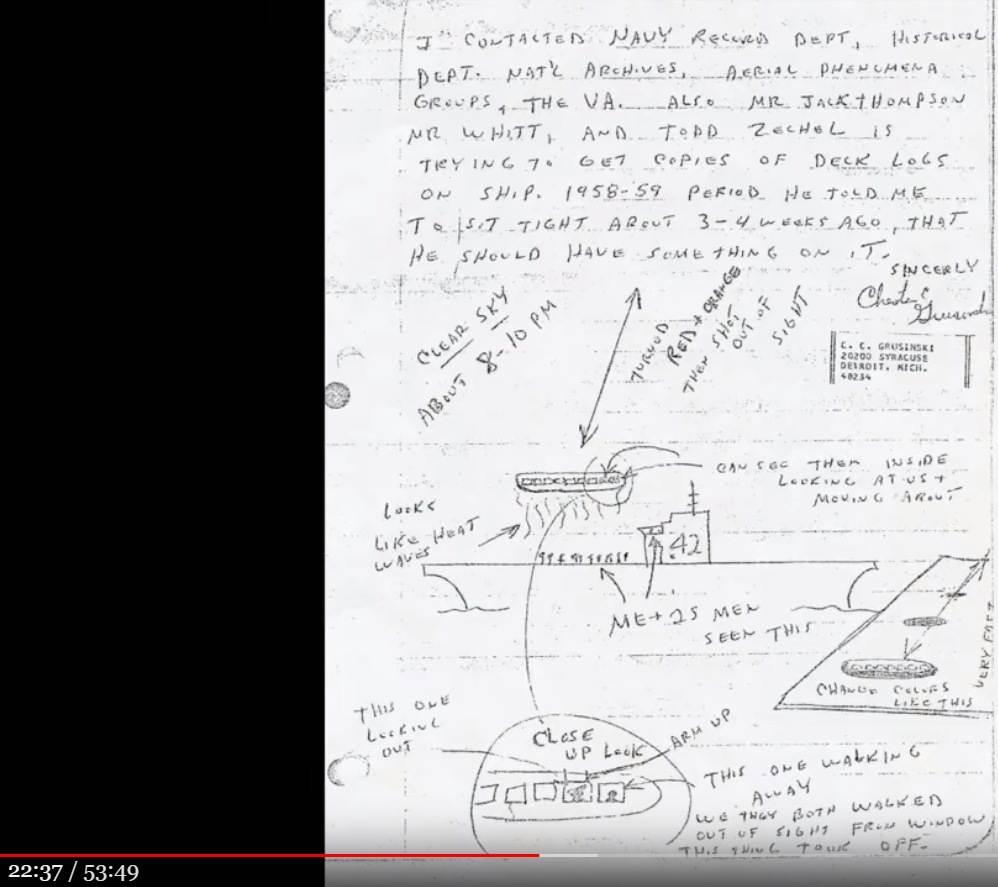 I CONTACTED NAVY RECORD DEPT, HISTORICAL
DEPT. NAT'L ARCHIVES, AERIAL PHENOMENA
GROUPS, THE VA. ALSO MR JACK THOMPSON
MR WHITT, AND TODD ZECHEL IS
TRYING TO GET COPIES OF DECK LOGS
ON SHIP. 1958-59 PERIOD HE TOLD ME
TO SIT TIGHT ABOUT 3-4 WEEKS AGO, THAT
HE SHOULD HAVE SOMETHING ON IT.
SINCERLY
C. C. GRUSINSKI
20200 SYRACUSE
DETROIT, MICH.
48234
CLEAR SKY
ABOUT 8-10 PM
TURNED
RED + ORANGE
THEN SHOT
OUT OF
SIGHT
CAN SEE THEM INSIDE
LOOKING AT US +
MOVING ABOUT
LOOKS
LIKE HEAT
WAVES
42
ME + 25 MEN
SEEN THIS
VERY FAST
CHANGE COLORS
LIKE THIS
THIS ONE
LOOKING
OUT
CLOSE
UP LOOK
ARM UP
THIS ONE WALKING
AWAY
WE THEY BOTH WALKED
OUT OF SIGHT FROM WINDOW
THIS THING TOOK OFF.
22:37 / 53:49